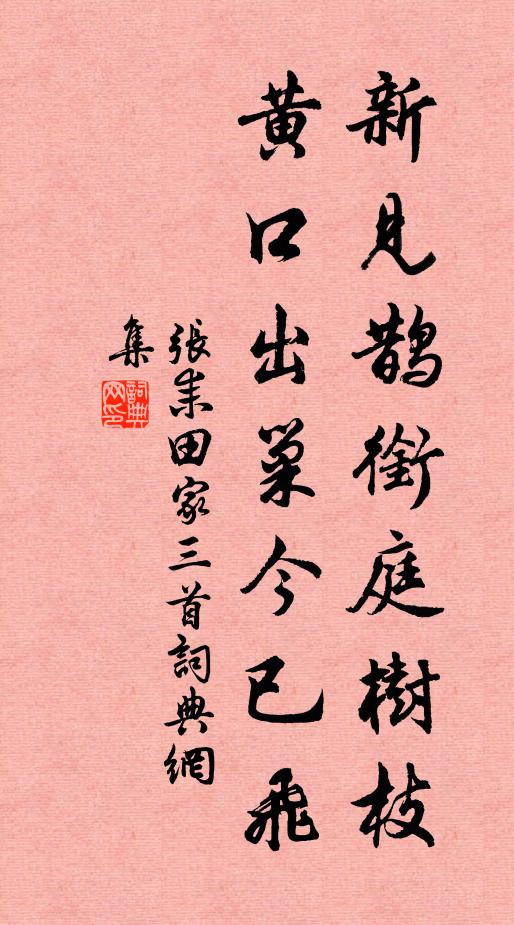 新見鵲銜庭樹枝
黃口出巢今已飛
張耒田家三首詞典網
集
詞典
网印